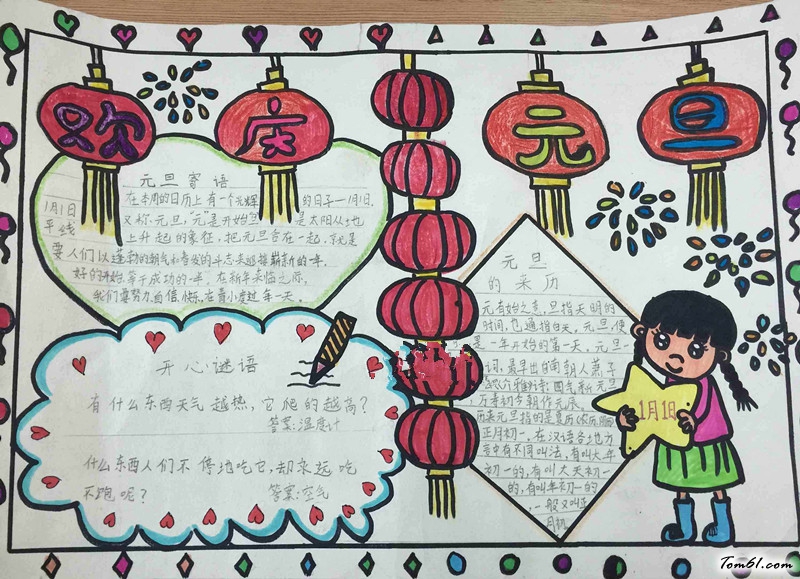 欢庆元旦
元旦寄语
在本周的日历上有一个元辉
的日子一1月1日.
1月1日
又称元旦,"元"是开始
是太阳从地
平线
上升起的象征,把元旦合在一起,就是
要人们以蓬勃的朝气和奋发的斗志来迎接崭新的一年.
好的开始等于成功的一半,在新年来临之际,
我们要努力,自信,快乐,
过每一天。
开心谜语
有什么东西天气越热,它爬的越高?
答案:温度计
什么东西人们不停地吃它,却永远吃
不饱呢?
答案:空气
元旦
的来历
元有始之意,旦指天明的
时间,也通指白天。元旦,便
是一年开始的第一天。元旦一
词,最早出自南朝人萧子
万寿初今朝
历来元旦指的是夏历
正月初一,在汉语各地方
言中有不同叫法,有叫大年
初一的,有叫大天初一
的,有叫年初一的
,一般又叫正
月初
1月1日
Tom61.com